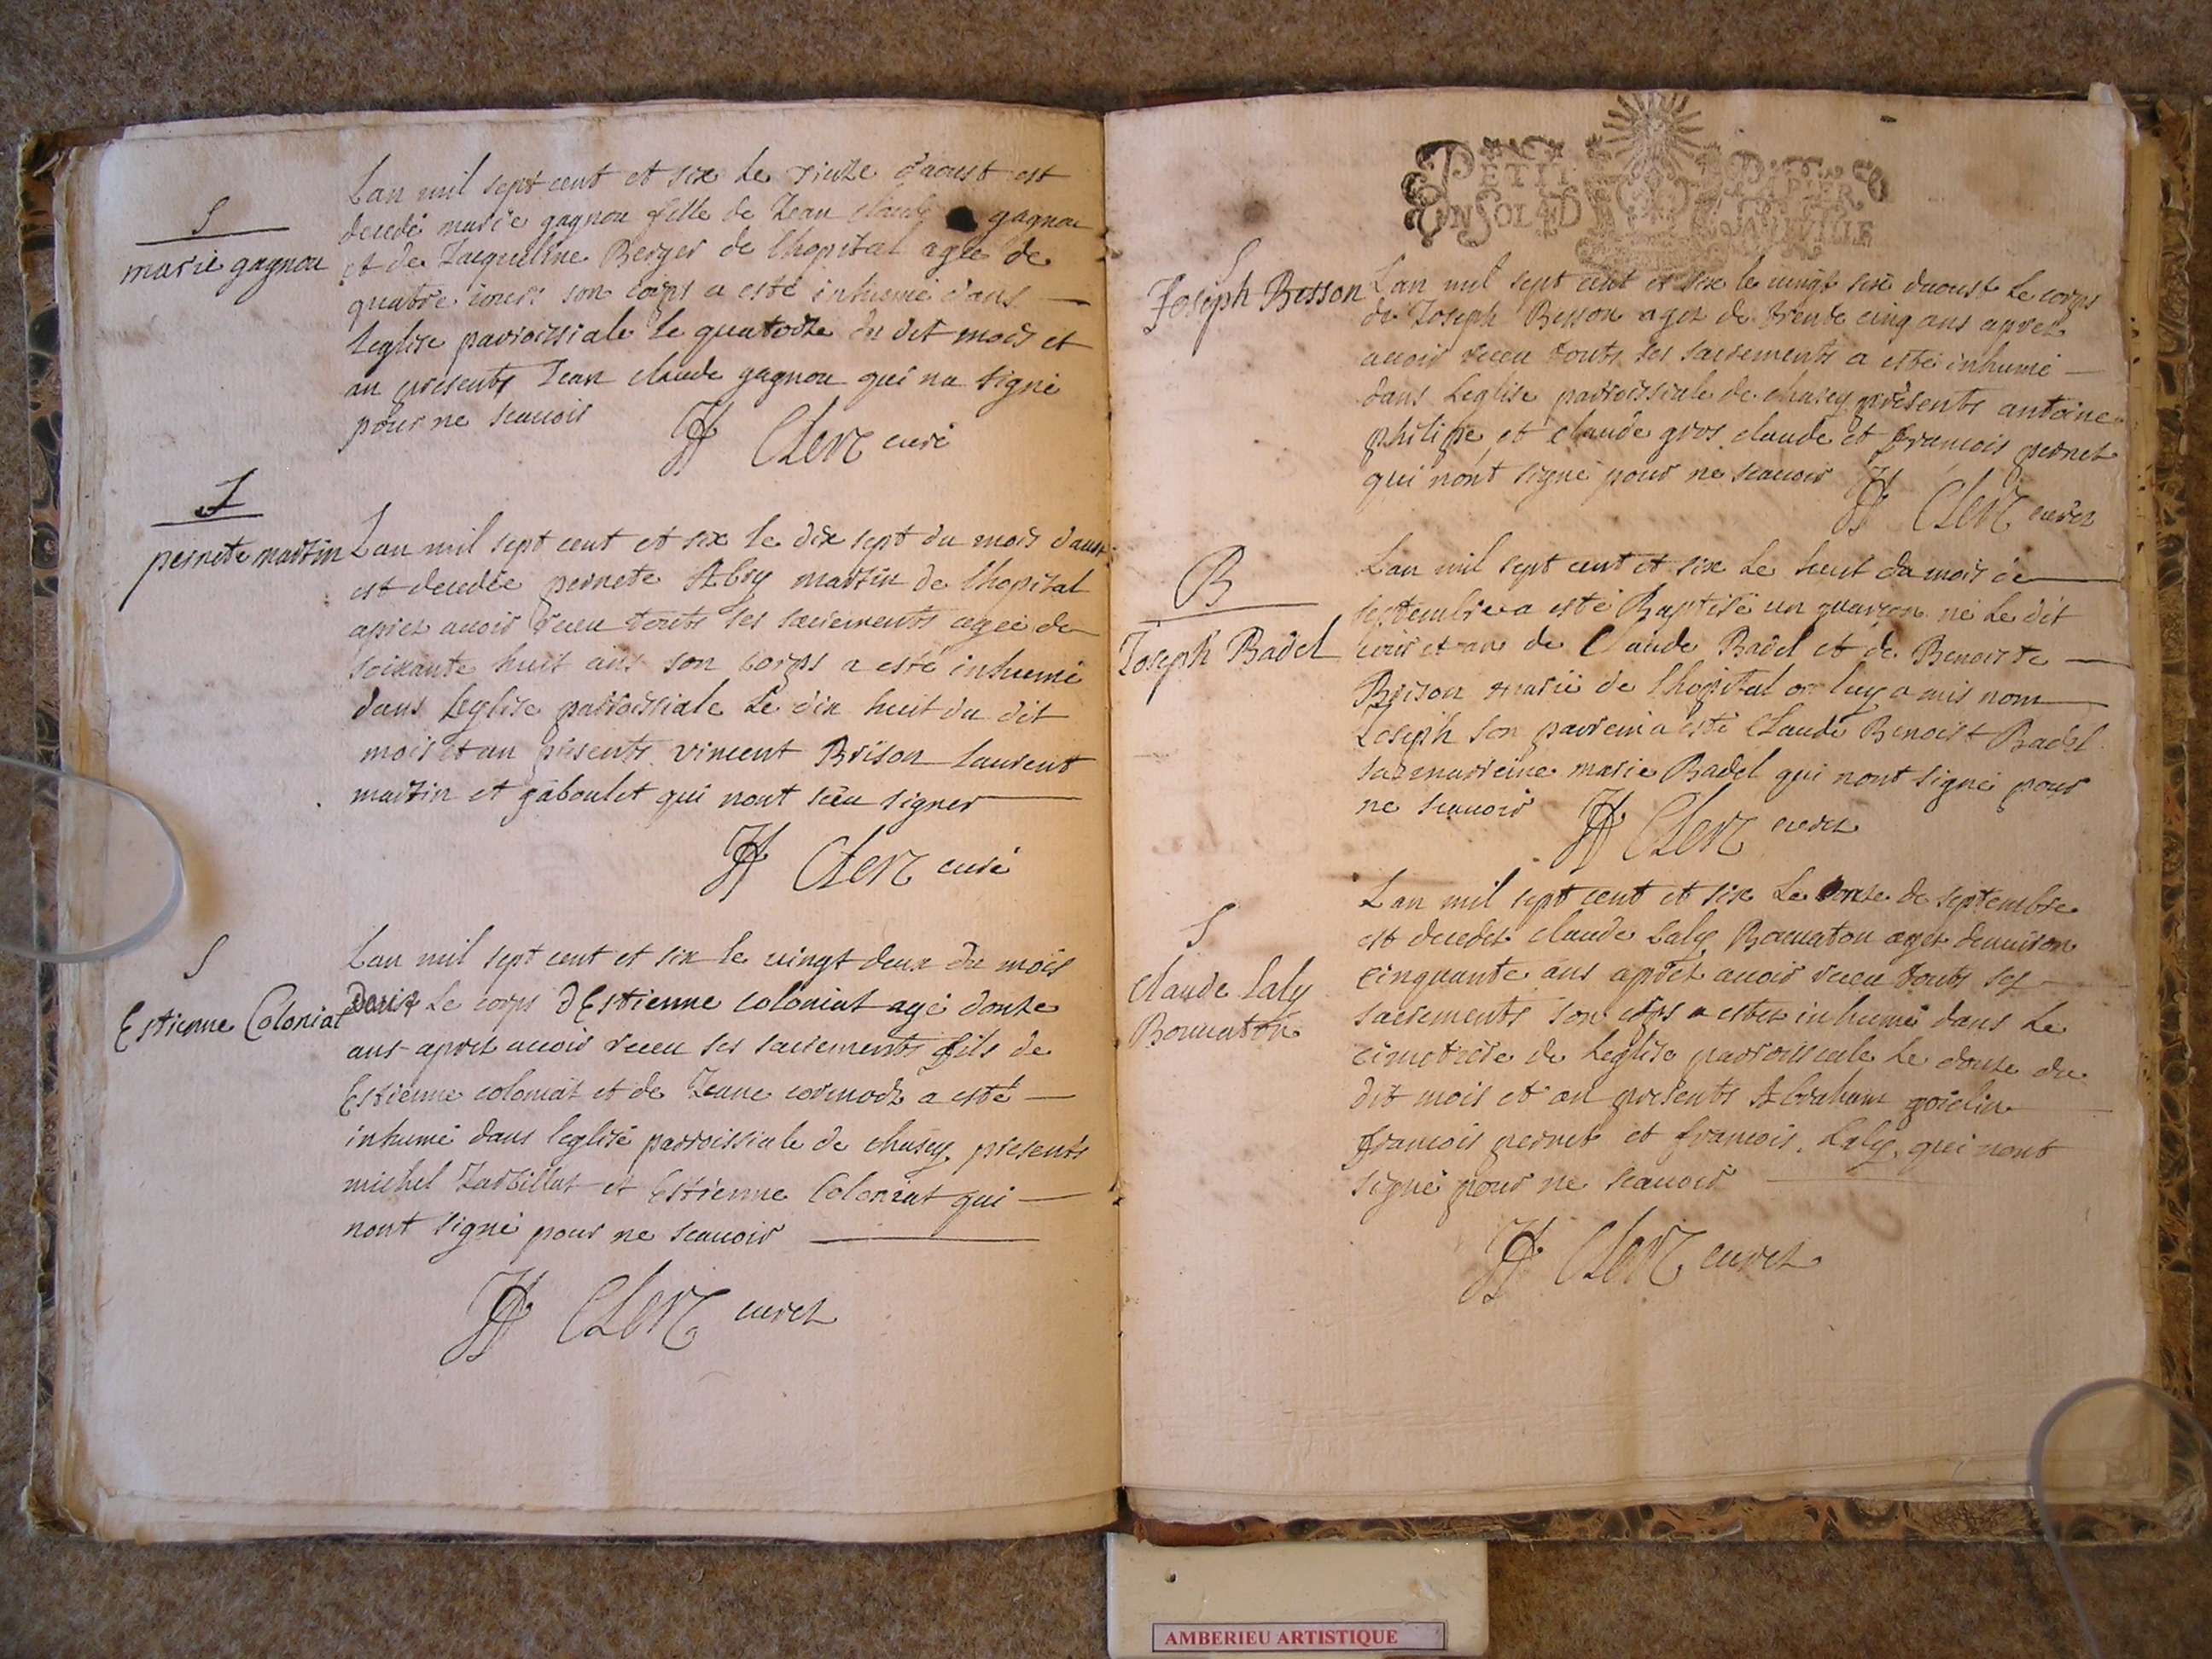 S
marie gagnou
Lan mil sept cent et six le treize daoust est
decedé marie gagnou fille de Jean claude gagnou
et de Jacqueline Berger de lhopital agée de
quatre iours son corps a esté inhumé dans
leglise parroissiale le quatorze du dit mois et
an presents Jean claude gagnou qui na signé
pour ne scauoir
Clerc curé
S
pernete martin
Lan mil sept cent et six le dix sept du mois daust
est decedée pernete Abry martin de lhopital
aprez auoir receu touts ses sacrements agée de
soixante huit ans son corps a esté inhumé
dans leglise parroissiale le dix huit du dit
mois et an presents vincent Brison laurent
martin et gaboulet qui nont sceu signer
Clerc curé
S
Estienne Coloniat
Lan mil sept cent et six le vingt deux du mois
Le corps dEstienne coloniat agé douze
ans aprez auoir receu ses sacrements fils de
Estienne coloniat et de Jeane cormodz a esté
inhumé dans leglise parroissiale de chasey presents
michel Tarbillat et Estienne Coloniat qui
nont signé pour ne scauoir
Clerc curez
PETIT PAPIER
UN SOL 4 D LA FEUILLE
S
Joseph Besson
Lan mil sept cent et six le uingt six daoust le corps
de Joseph Besson agez de trente cinq ans aprez
auoir receu touts ses sacrements a esté inhumé
dans leglise parroissiale de chasey presents antoine
philipe et claude gros claude et francois pernet
qui nont signé pour ne scauoir
Clerc curez
B
Joseph Badel
Lan mil sept cent et six le huit du mois de
septembre a esté Baptisé un guarçon né le dit
iour et an de Claude Badel et de Benoiste
Brison marië de lhopital on luy a mis nom
Joseph son parrein a esté Claude Benoist Badel
sa marreine marie Badel qui nont signé pour
ne scauoir
Clerc curez
S
claude Laly
Bonnaton
Lan mil sept cent et six le onze de septembre
est decedez claude Laly Bonnaton agez denuiron
cinquante ans aprez auoir receu touts ses
sacrements son corps a estez inhumé dans le
cimetiere de leglise parroissiale le douze du
dit mois et an presents Abraham goielin
francois pernet et francois Laly qui nont
signé pour ne scauoir
Clerc curez
AMBERIEU ARTISTIQUE